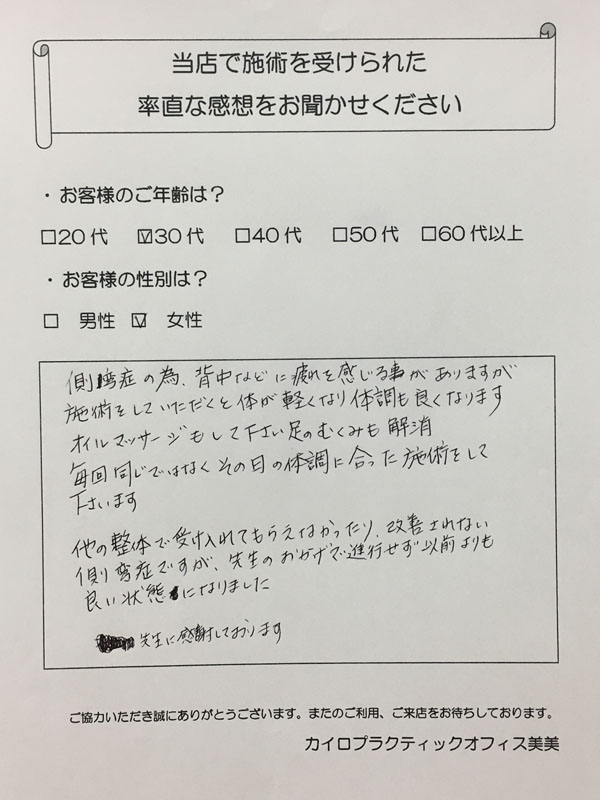 当店で施術を受けられた
率直な感想をお聞かせください
・お客様のご年齢は？
□20代 ☑30代 □40代 □50代 □60代以上
・お客様の性別は？
□ 男性 ☑ 女性
側弯症の為、背中などに疲れを感じる事がありますが
施術をしていただくと体が軽くなり体調も良くなります
オイルマッサージもして下さい足のむくみも解消
毎回同じではなくその日の体調に合った施術をして
下さいます
他の整体で受け入れてもらえなかったり、改善されない
側弯症ですが、先生のおかげで進行せず以前よりも
良い状態になりました
先生に感謝しております
ご協力いただき誠にありがとうございます。またのご利用、ご来店をお待ちしております。
カイロプラクティックオフィス美美